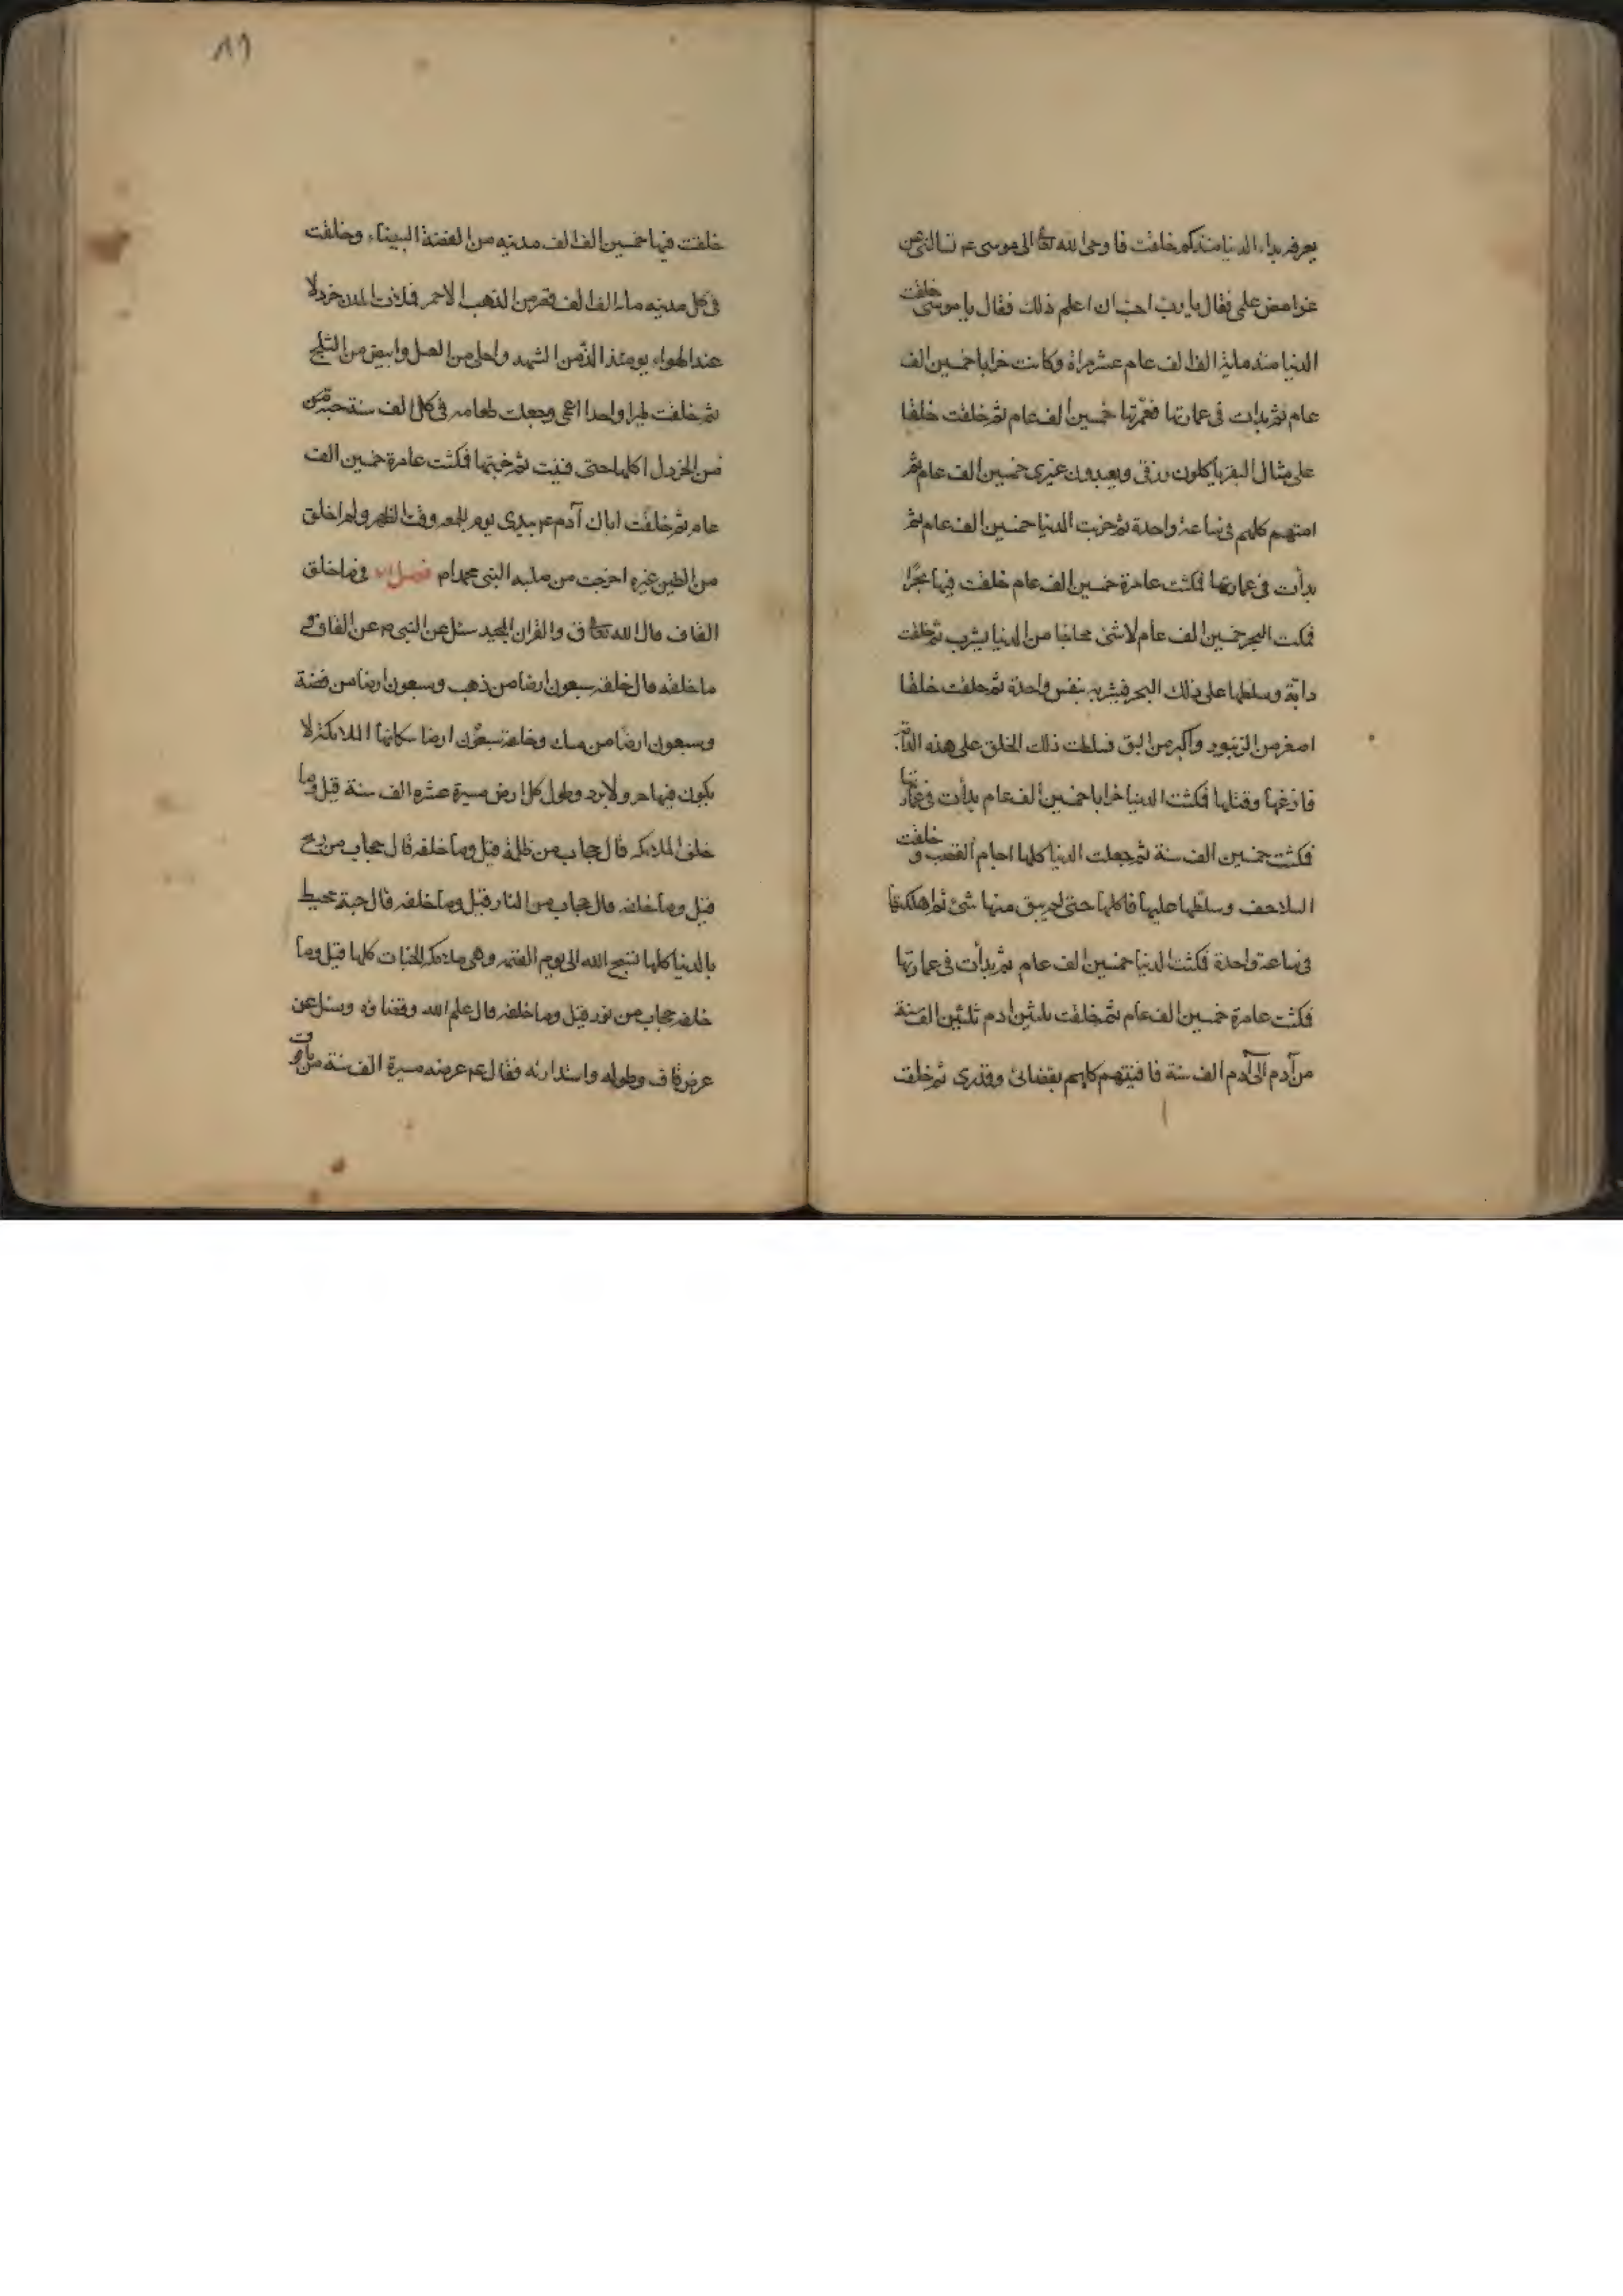 يعرفه بداء الدنيا منذ كم خلقت فاوحى الله تعا الى موسى عم تسالنى عن
غوامض علمى فقال يا رب احب ان اعلم ذلك فقال يا موسى خلقت
الدنيا منذ مائة الف الف عام عشر مراة وكانت خرابا خمسين الف
عام ثم بدات فى عمارتها فعمرتها خمسين الف عام ثم خلقت خلقا
على مثال البقر ياكلون رزقى ويعبدون غيرى خمسين الف عام ثم
امتهم كلهم فى ساعة واحدة ثم خربت الدنيا خمسين الف عام ثم
بدأت فى عمارتها فمكثت عامرة خمسين الف عام خلقت فيها بحرًا
فمكث البحر خمسين الف عام لا شئ محاجا من الدنيا يشرب ثم خلقت
دابة وسلطها على ذلك البحر فشربه بنفس واحدة ثم خلقت خلقا
اصغر من الزنبور واكبر من البق فسلطت ذلك الخلق على هذه الدابة
فلدغها وقتلها فمكثت الدنيا خرابا خمسين الف عام بدأت فى عمارتها
فمكثت خمسين الف سنة ثم جعلت الدنيا كلها اجام القصب و خلقت
السلاحف وسلطها عليها فاكلها حتى لم يبق منها شئ ثم اهلكتها
فى ساعة واحدة فمكثت الدنيا خمسين الف عام ثم بدأت فى عمارتها
فمكثت عامرة خمسين الف عام ثم خلقت ثلثين ادم ثلثين الف سنة
من آدم الى آدم الف سنة فافنيتهم كلهم بقضائى وقدرى ثم خلقت
١٩
خلقت فيها خمسين الف الف مدينه من الفضة البيضاء وخلقت
فى كل مدينه مائة الف الف قصر من الذهب الاحمر فملات المدن خردلا
عند الهواء يومئذ الذ من الشهد واحلى من العسل وابيض من الثلج
ثم خلقت طيرا واحدا اعمى وجعلت طعامه فى كل الف سنة حبة من
من الخردل اكلها حتى فنيت ثم خربتها فمكثت عامرة خمسين الف
عام ثم خلقت اباك آدم عم بيدى يوم الجمعه وقت الظهر ولم اخلق
من الطين غيره اخرجت من صلبه النبى محمد ام فصل فى ما خلق
القاف قال الله تعا ق والقران المجيد سئل عن النبى ص عن القاف و
ما خلفه قال خلفه سبعون ارضا من ذهب وسبعون ارضا من فضة
وسبعون ارضا من مسك وخلفه سبعون ارضا سكانها الملائكة لا
يكون فيها حر ولا برد وطول كل ارض مسيرة عشره الف سنة قيل وما
خلف الملائكه قال حجاب من ظلمة قيل وما خلفه قال حجاب من ريح
قيل وما خلفه قال حجاب من النار قيل وما خلفه قال حية محيط
بالدنيا كلها تسبح الله الى يوم القيمه وهى ملكة الحيات كلها قيل وما
خلفه حجاب من نور قيل وما خلفه قال علم الله وقضاؤه وسئل عن
عرض قاف وطوله واستدارته فقال عم عرضه مسيرة الف سنة من ياقوت